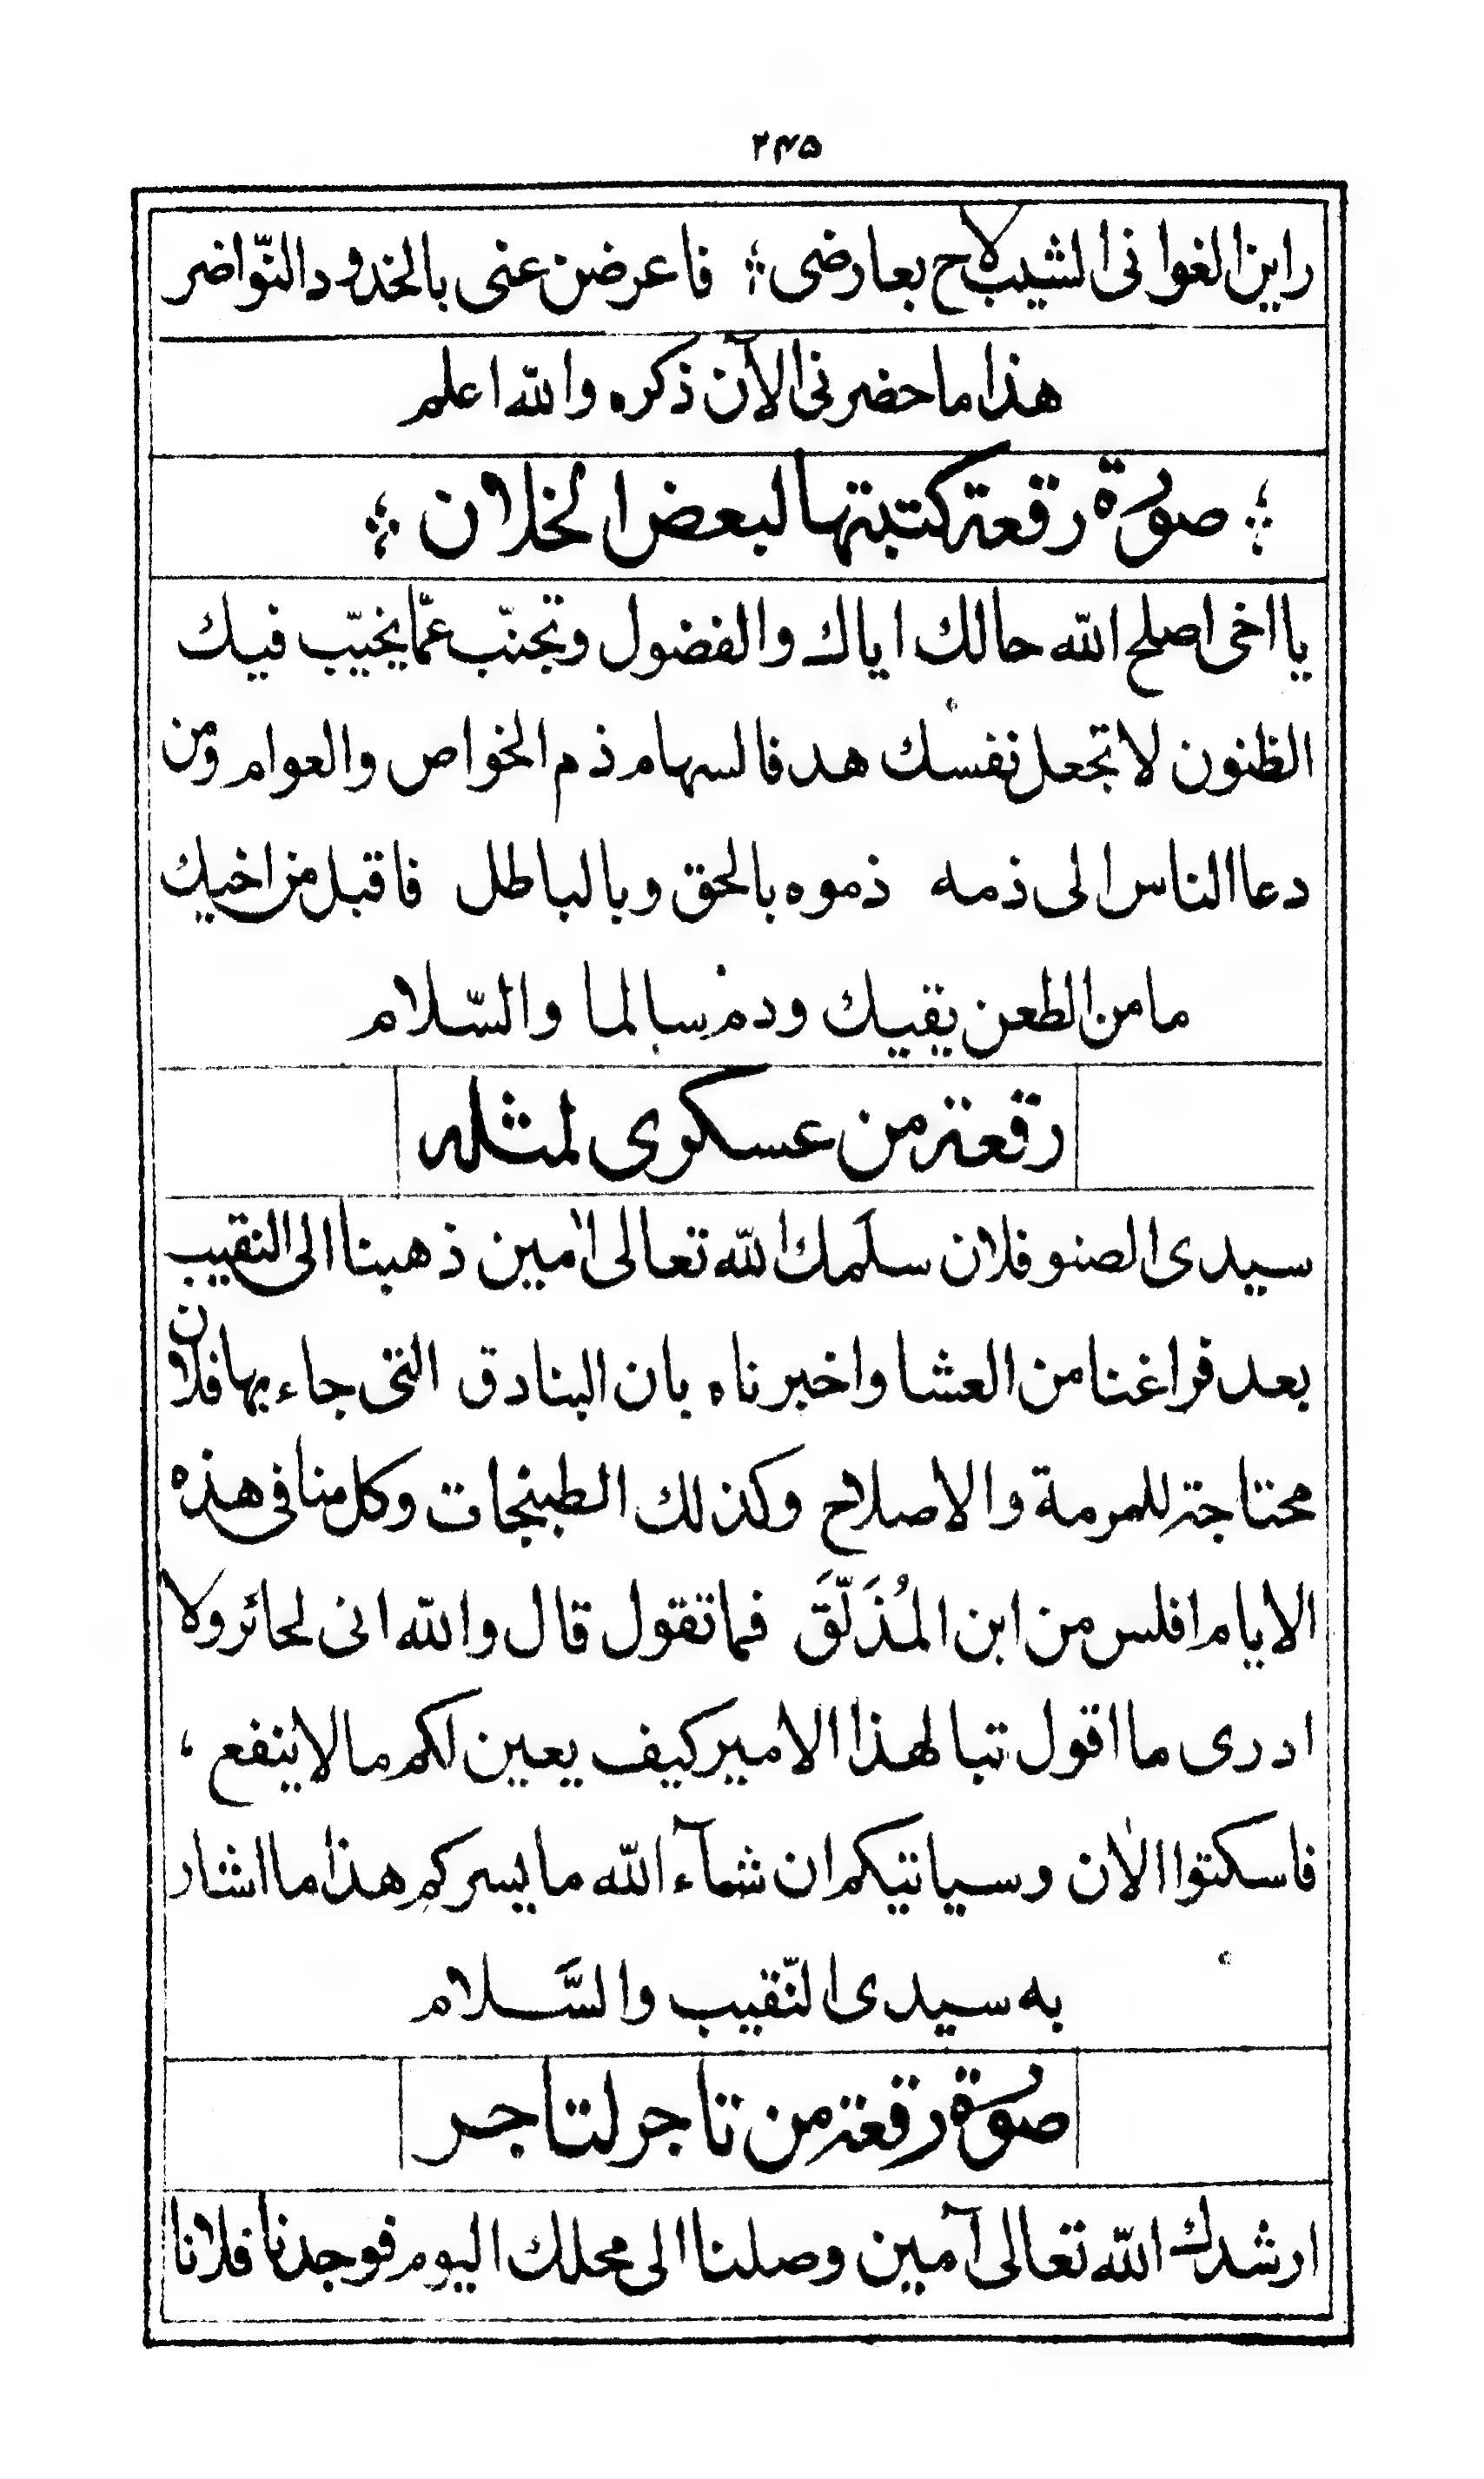 ٢٤٥
راين الغوانى الشيب لاح بعارضى ؞ فاعرضن عنى بالخدود النّواضر
هذا ما حضرنى الآن ذكره والله اعلم
؞ صورة رقعة كتبتها لبعض الخلان ؞
يا اخى اصلح الله حالك اياك والفضول وتجنّب عمّا يخيّب فيك
الظنون لا تجعل نفسك هدفا لسهام ذم الخواص والعوام ومن
دعا الناس الى ذمه ذموه بالحق وبالباطل فاقبل من اخيك
ما من الطعن يقيك ودم سالما والسّلام
رقعة من عسكرى لمثله
سيدى الصنو فلان سلمك الله تعالى اٰمين ذهبنا الى النقيب
بعد فراغنا من العشا واخبرناه بان البنادق التى جاء بها فلان
محتاجة للمرمة والاصلاح وكذلك الطبنجات وكل منا فى هذه
الايام افلس من ابن المُذَلَّقَ فما تقول قال والله انى لحائر ولا
ادرى ما اقول تبا لهذا الامير كيف يعين لكم ما لا ينفع ،
فاسكتوا الاٰن وسياتيكم ان شآء الله ما يسركم هذا ما اشار
به سيدى النّقيب والسَّلام
صورة رقعة من تاجر لتاجر
ارشدك الله تعالى آمين وصلنا الى محلك اليوم فوجدنا فلانا